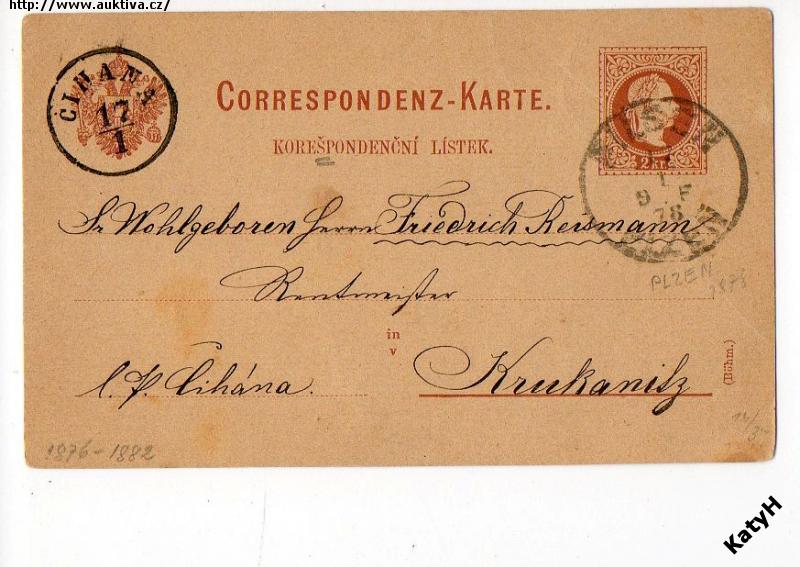 http://www.auktiva.cz/
CIHANA
17
1
CORRESPONDENZ-KARTE.
KOREŠPONDENČNÍ LÍSTEK.
2 Kr.
PILSEN
1
9 F
78
Sr Wohlgeboren Herrn Friedrich Reismann
PLZEN
1878
Rentmeister
in
v
l. P. Čihána.
Krukanitz
(Böhm.)
1876-1882
KatyH